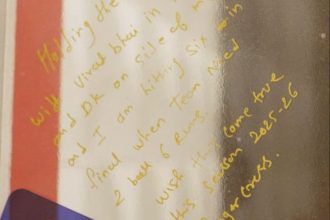 Holding the
with Virat bhai in
and DK on side of m
and I am hitting six in
final when Team need
2 ball 6 Runs.
wish this come true
this season 2025-26